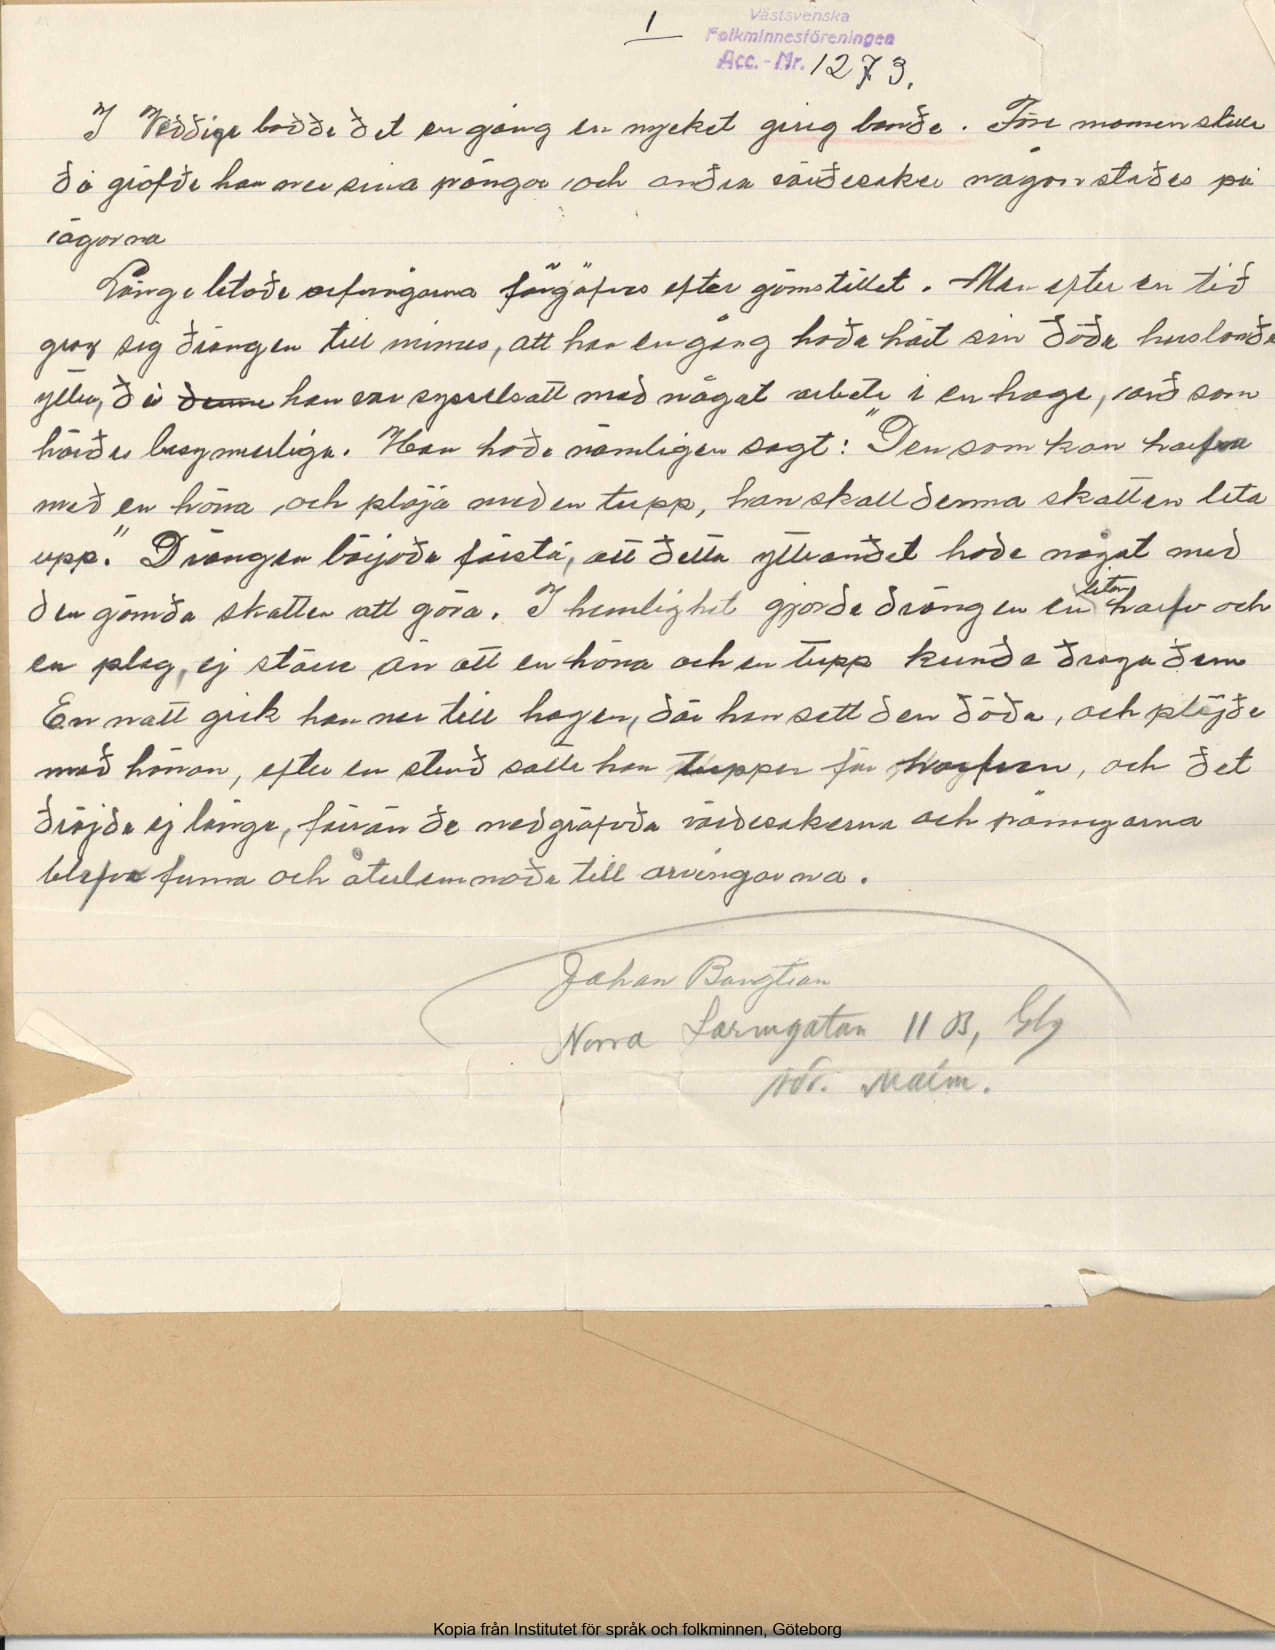 1
Västsvenska
Folkminnesföreningen
Acc.-Nr. 1273.
I Veddige bodde det en gång en mycket girig bonde. Före mannen skulle
dö gräfde han ner sina pängar och andra värdesaker någonstädes på
ägorna
Länge letade arfvingarna förgäfves efter gömstället. Men efter en tid
grov sig drängen till minnes, att han en gång hade hört sin döde husbonde
yttra, då denne han var sysselsatt med något arbete i en hage, ord som
hördes besynnerliga. Han hade nämligen sagt: "Den som kan harfva
med en höna och plöja med en tupp, han skall denna skatten leta
upp." Drängen började förstå, att detta yttrandet hade något med
den gömda skatten att göra. I hemlighet gjorde drängen en liten harf och
en plog, ej större än att en höna och en tupp kunde draga dem
En natt gick han ner till hagen, där han sett den döde, och plöjde
med hönan, efter en stund satte han tuppen för harfven, och det
dröjde ej länge, förrän de nedgräfvda värdesakerna och pänningarna
blefvo funna och återlemnade till arvingarna.
Johan Bengtson
Norra Larmgatan 11 B, Gbg
Malm.
Kopia från Institutet för språk och folkminnen, Göteborg